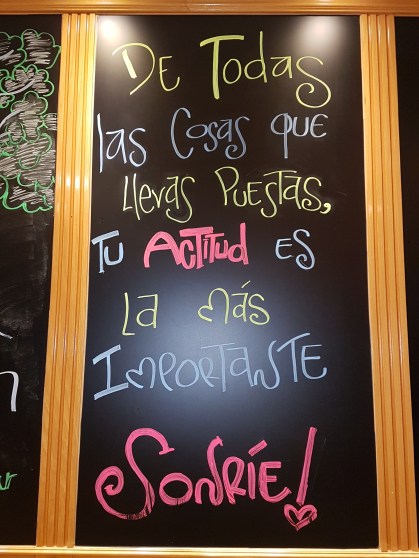 De Todas
las Cosas que
llevas Puestas,
tu Actitud es
la más
Importante
Sonríe!